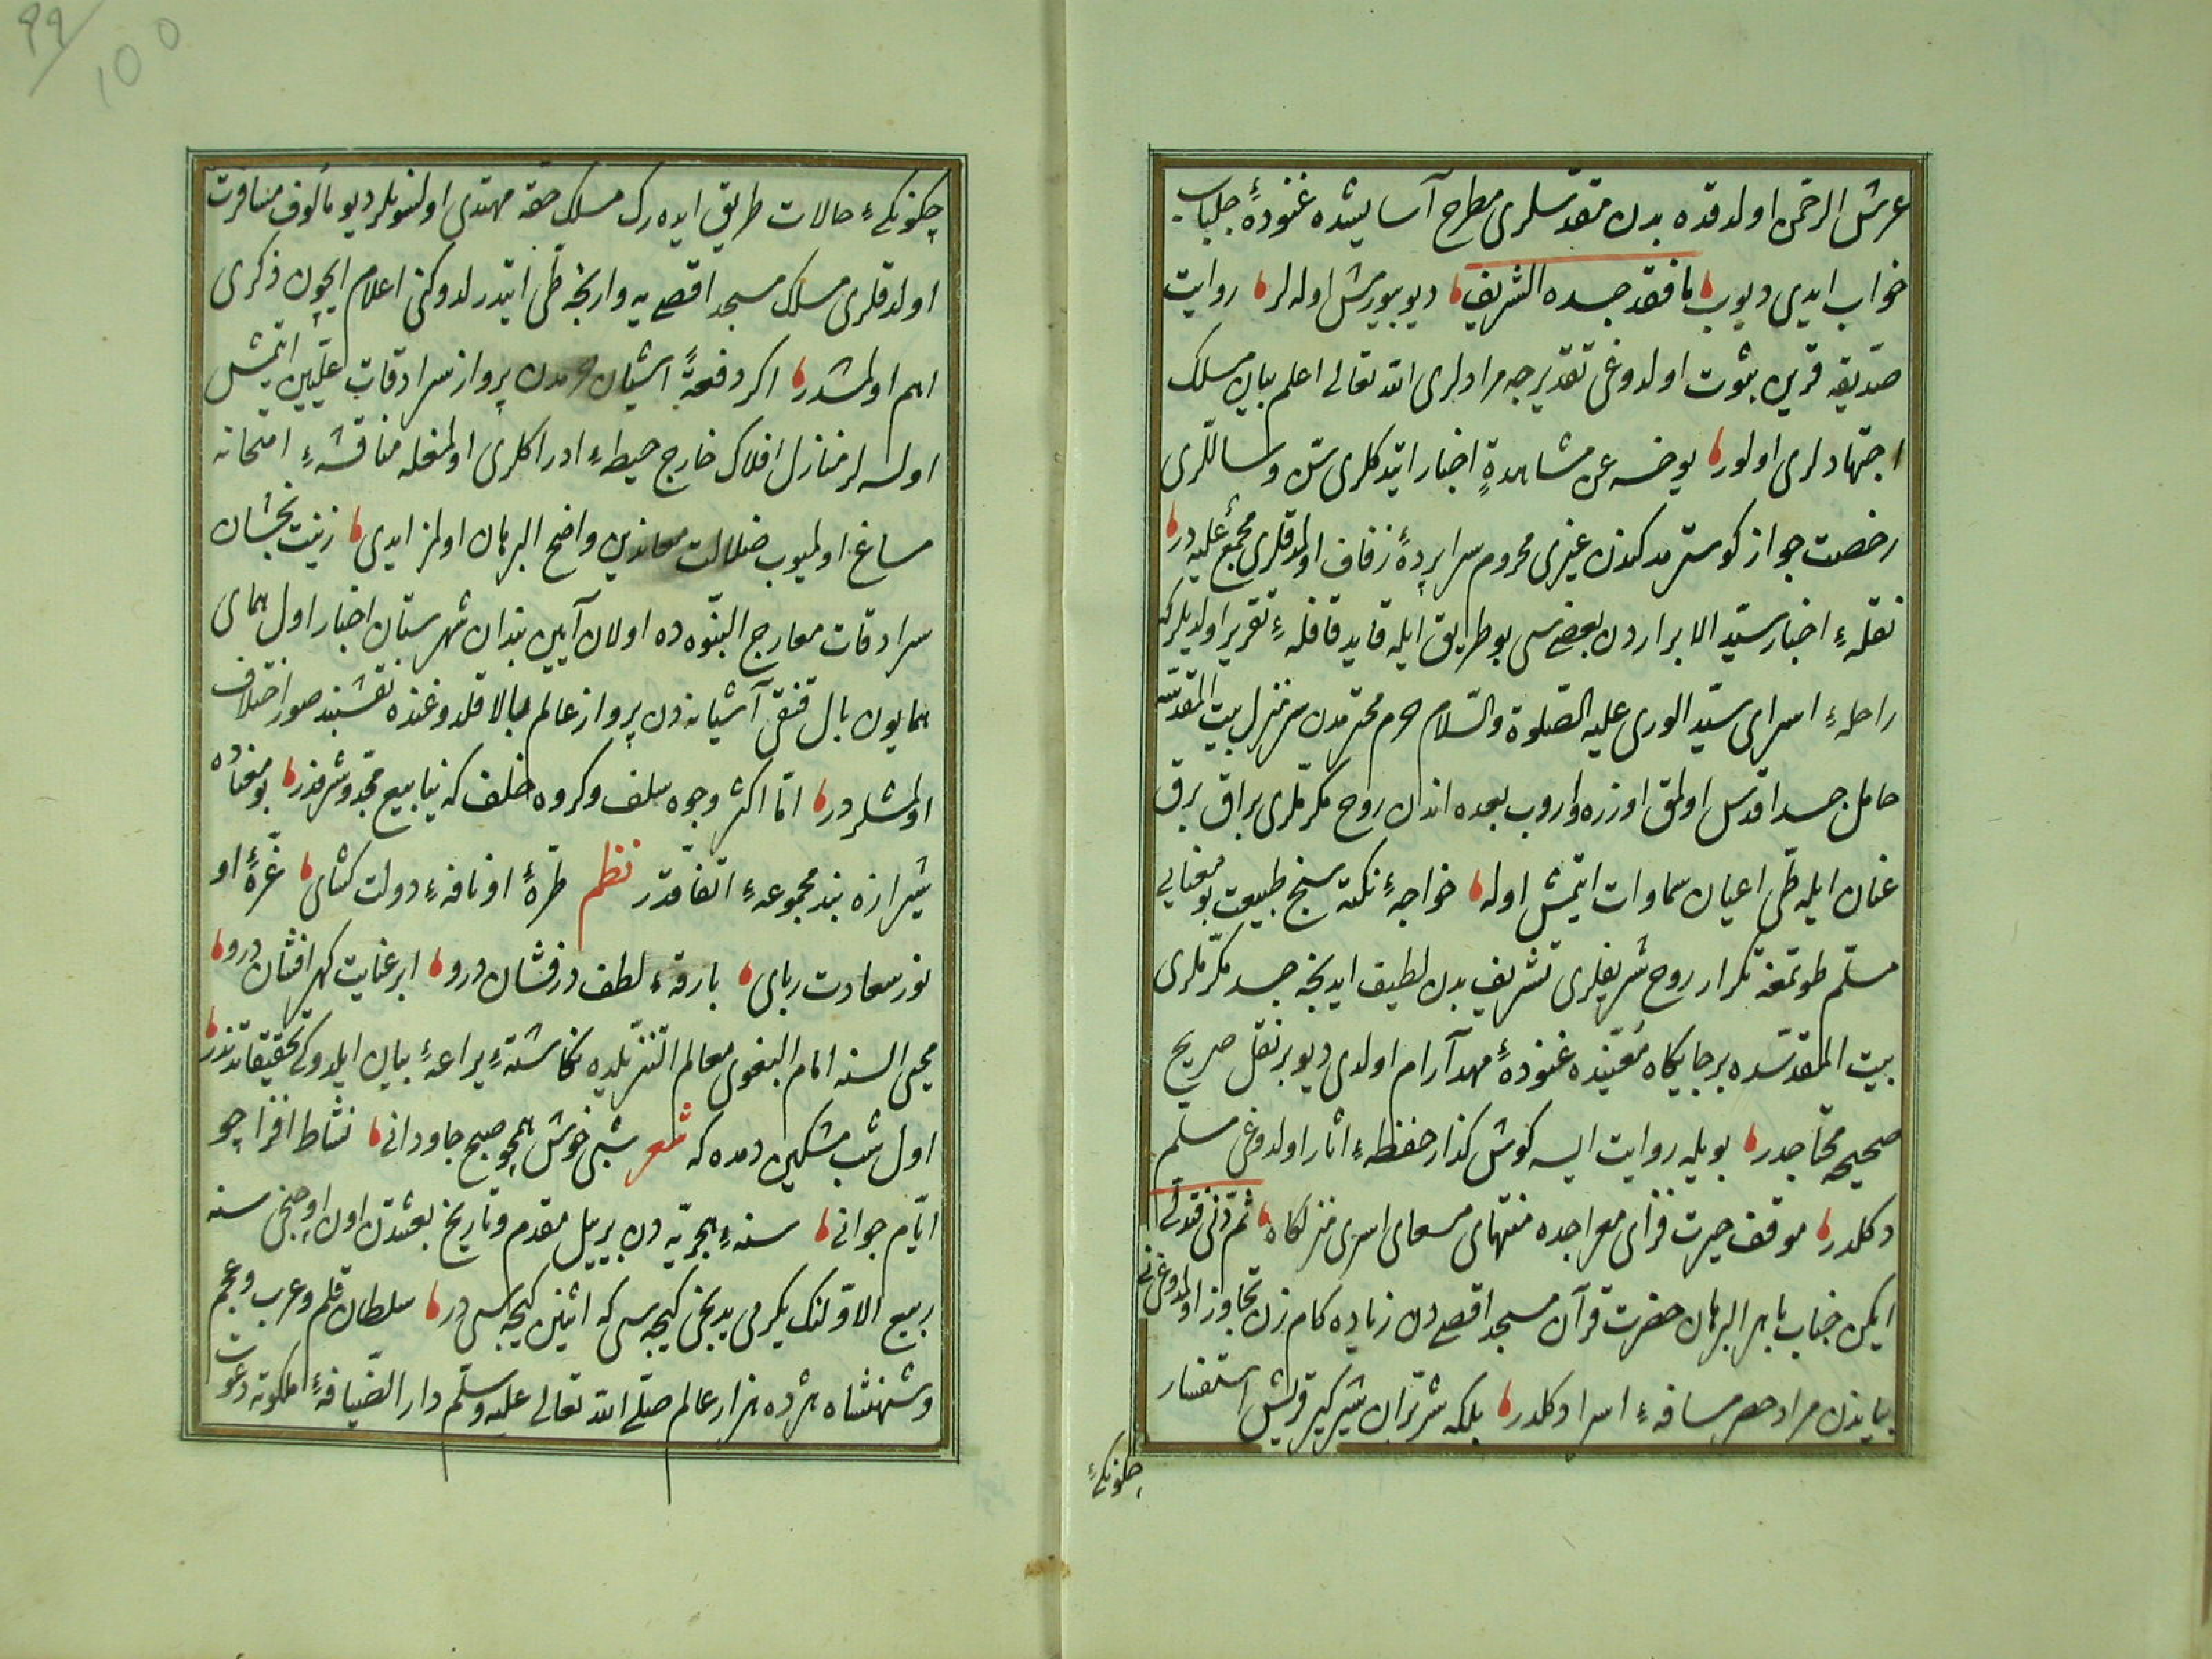 عرش الرحمن اولدقده بدن مقدسلری مطرح آسایشده غنودهٔ جلباب
خواب ایدی دیوب ما فقد جسده الشریف دیو بیورمش اوله لر روایت
صدیقه قرین ثبوت اولدوغی تقدیرجه مرادلری الله تعالی اعلم بیان مسلک
اجتهادلری اولور یوخسه عن مشاهدة اخبار ایتدکلری سن وساللری
رخصت جواز کوسترمدکندن غیری محروم سراپردهٔ زفاف اولمدقلری مجمع علیه در
نقلهٔ اخبار سید الابراردن بعضیسی بو طریق ایله قاید قافلهٔ تقریر اولدیلر که
راحلهٔ اسرای سید الوری علیه الصلوة والسلام حرم محترمدن سرمنزل بیت المقدسه
حامل جسد اقدس اولمق اوزره واروب بعده اندن روح مکرملری براق برق
عنان ایله طی اعیان سماوات ایتمش اوله خواجهٔ نکته سنج طبیعت بو معنایی
مسلم طوتمغه تکرار روح شریفلری تشریف بدن لطیف ایدنجه جسد مکرملری
بیت المقدسده بر جایکاه معینده غنودهٔ مهد آرام اولدی دیو بر نقل صریح
صحیحه محتاجدر بویله روایت ایسه کوش کذار حفظهٔ اثار اولدوغی مسلم
دکلدر موقف حیرت فزای معراجده منتهای مسعای اسری منزلکاه ثم دنی فتدلی
ایکن جناب باهر البرهان حضرت قرآن مسجد اقصی دن زیاده کام زن تجاوز اولمدوغی نی
بیاندن مراد حصر مسافهٔ اسرا دکلدر بلکه شرّان شیرکیر قریش استفسار
چکونکیٔ
چکونکیٔ حالات طریق ایده رک مسلک حقه مهتدی اولسونلر دیو مألوف مسافرت
اولدقلری مسلک مسجد اقصی یه وارنجه طی ایتدرلدوکنی اعلام ایچون ذکری
اهم اولمشدر اکر دفعةً آشیان حرمدن پرواز سرادقات علیین ایتمش
اولسه لر منازل افلاک خارج حیطهٔ ادراکلری اولمغله مناقشهٔ امتحانه
مساغ اولمیوب ضلالت معاندین واضح البرهان اولمز ایدی زینت بخشان
سرادقات معارج النبوه ده اولان آیین بندان شهرستان اخبار اول همای
همایون بال قنقی آشیانه دن پرواز عالم بالا قلدوغنده نقشبند صور اختلاف
اولمشلردر اما اکثر وجوه سلف وکروه خلف که ینابیع مجد وشرفدر بو معناده
شیرازه بند مجموعهٔ اتفاقدر نظم طرهٔ او نافهٔ دولت کشای غرهٔ او
نور سعادت ربای بارقهٔ لطف درفشان درو ابر عنایت کهر افشان درو
محیی السنه امام البغوی معالم التنزیلده نکاشتهٔ یراعهٔ بیان ایلدوکی تحقیقاتدندر
اول شب مشکین دمده که شعر شبی خوش همچو صبح جاودانی نشاط افزا چو
ایام جوانی سنهٔ هجریه دن بر ییل مقدم وتاریخ بعثتدن اون اوچنجی سنه
ربیع الاولنک یکرمی یدنجی کیجه سی که اثنین کیجه سی در سلطان قلم وعرب وعجم
وشهنشاه هژده هزار عالم صلی الله تعالی علیه وسلم دار الضیافهٔ ملکوته دعوت